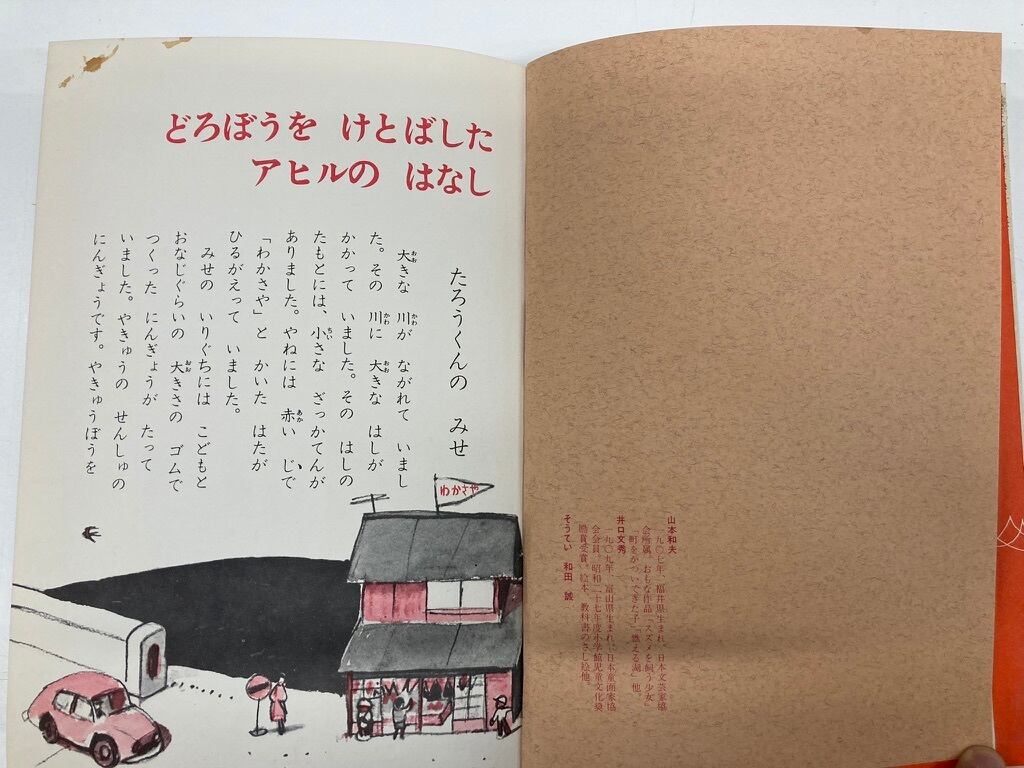 山本和夫
一九〇七年、福井県生まれ。日本文芸家協
会所属。おもな作品「スズメを飼う少女」
「町をかついできた子」「燃える湖」他。
井口文秀
一九〇九年、富山県生まれ。日本童画家協
会会員。昭和二十七年度小学館児童文化奨
励賞受賞。絵本、教科書のさし絵他。
そうてい 和田 誠
どろぼうを けとばした
アヒルの はなし
たろうくんの みせ
大きな 川が ながれて いまし
た。その 川に 大きな はしが
かかって いました。その はしの
たもとには、小さな ざっかてんが
ありました。やねには 赤い じで
「わかさや」と かいた はたが
ひるがえって いました。
みせの いりぐちには こどもと
おなじぐらいの 大きさの ゴムで
つくった にんぎょうが たって
いました。やきゅうの せんしゅの
にんぎょうです。やきゅうぼうを
わかさや